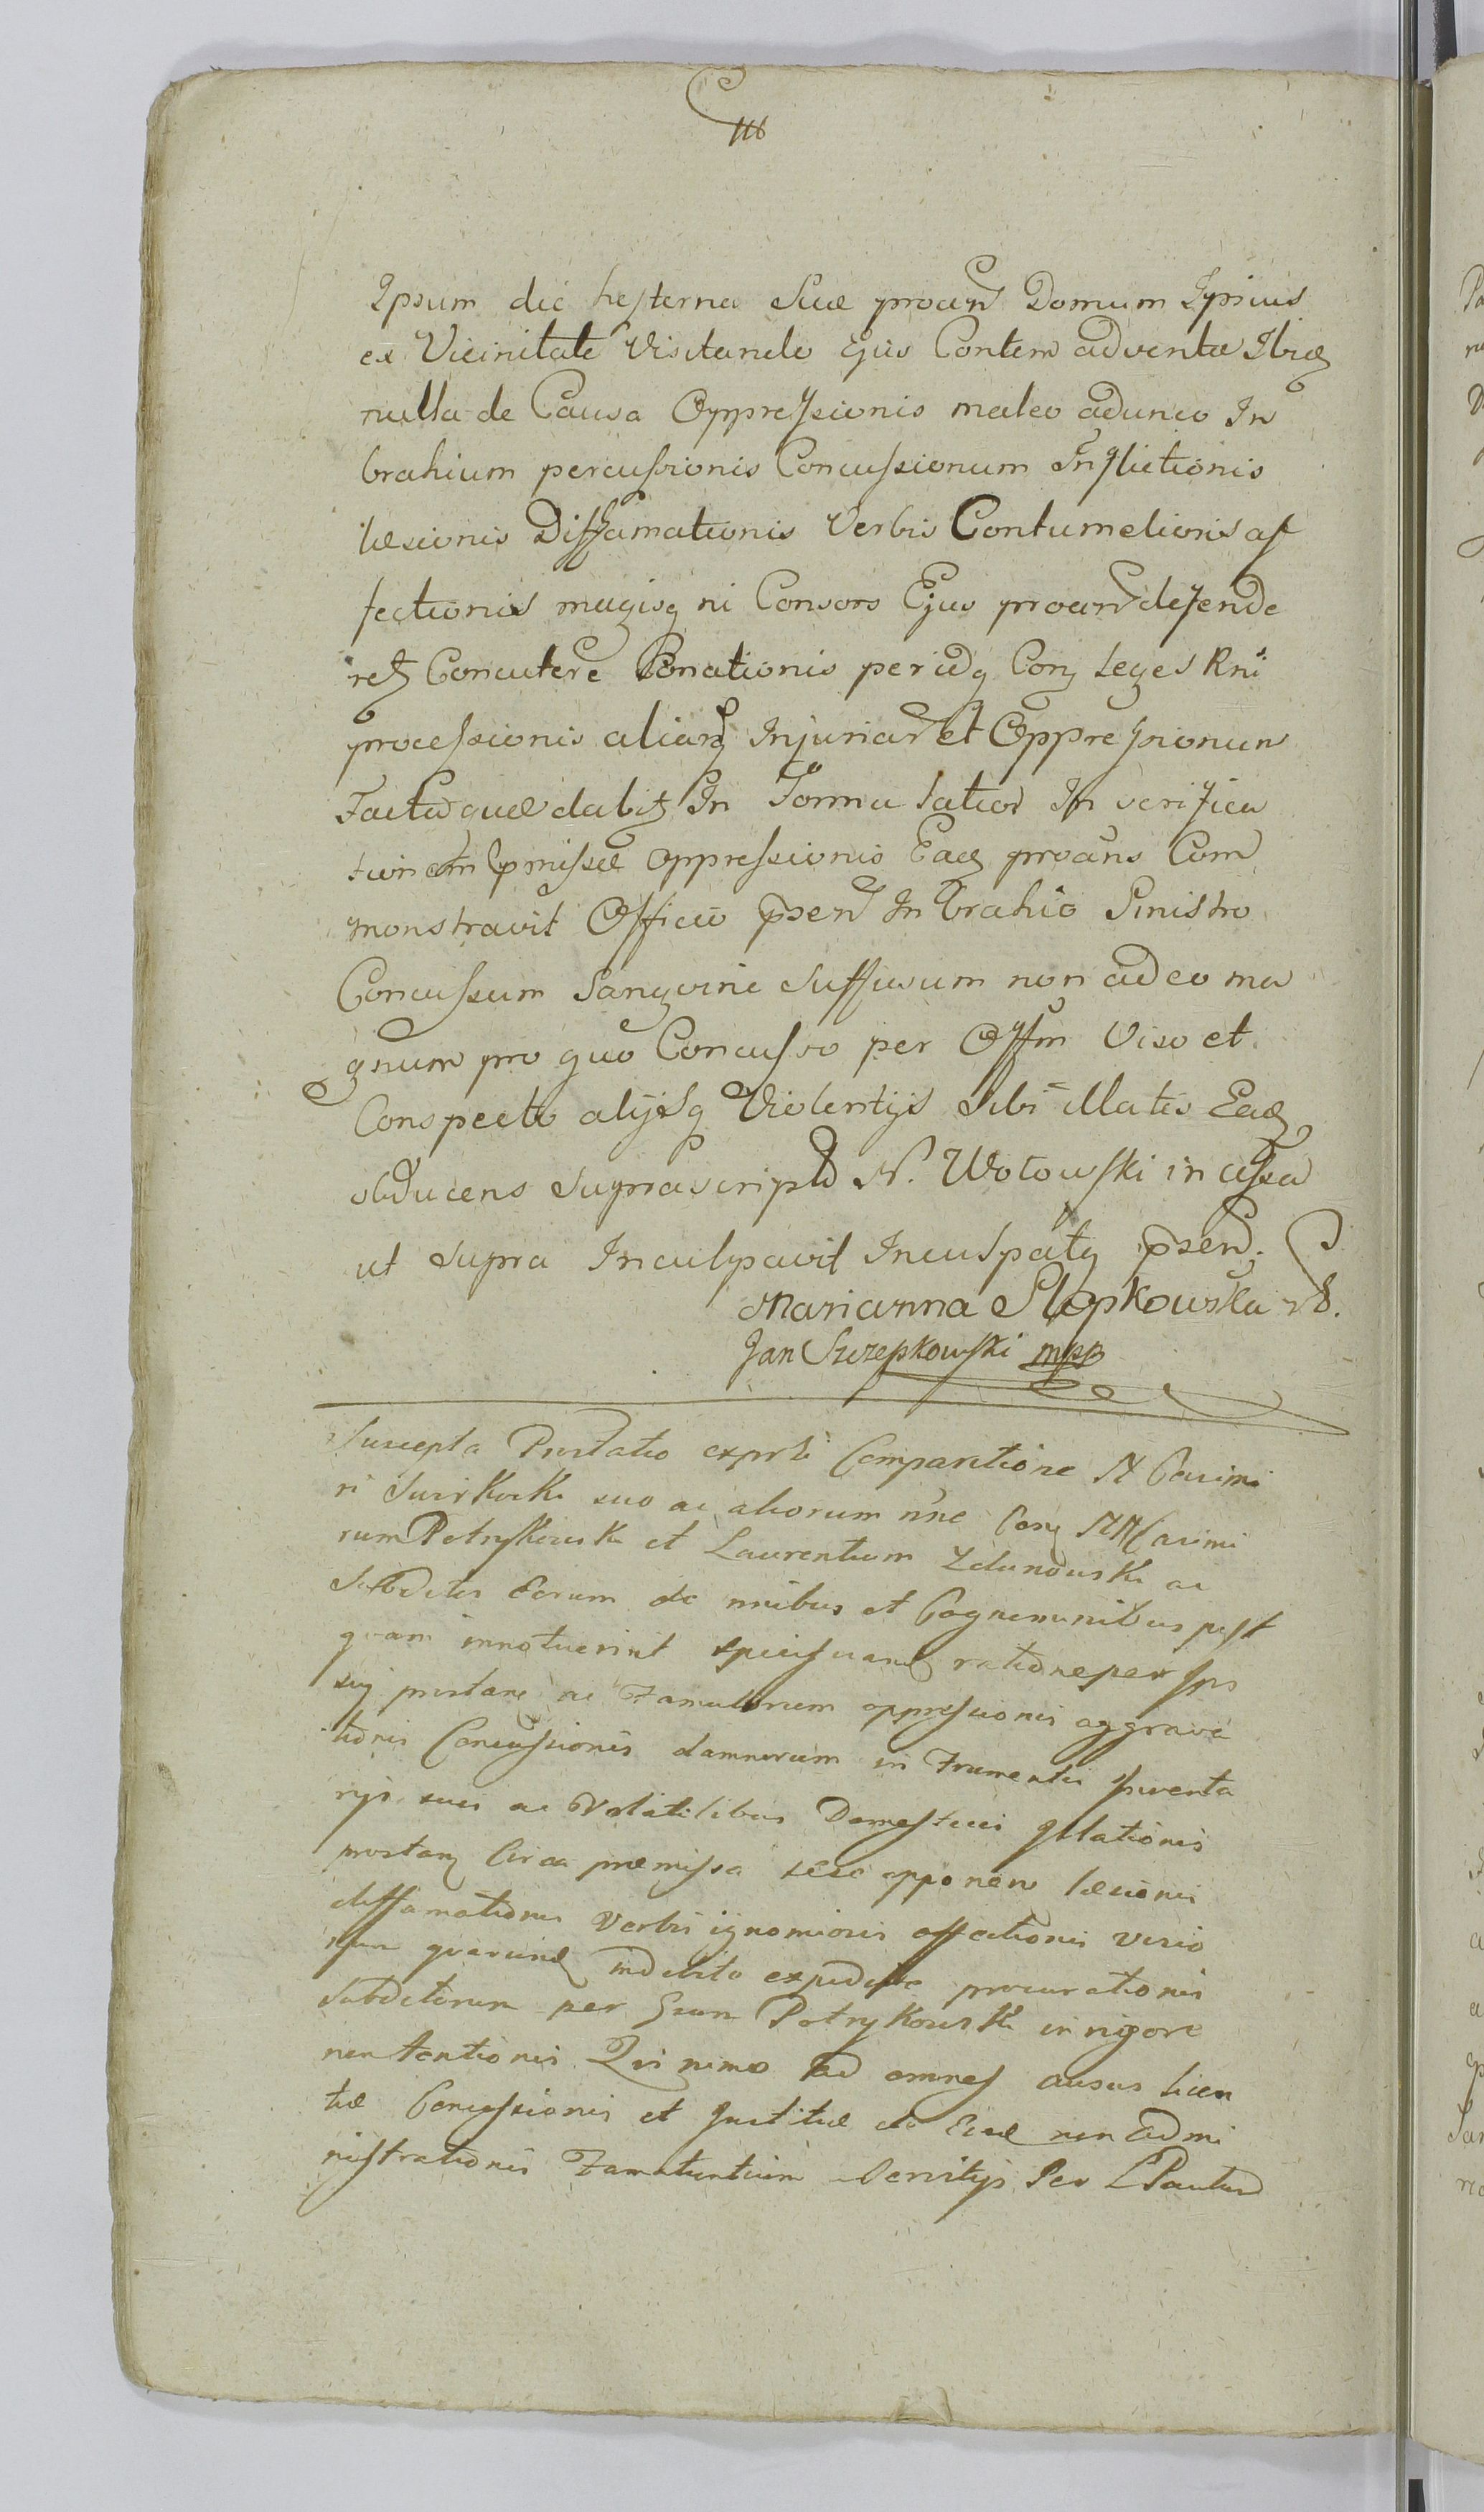 116
Ipsum die hesterna Suæ procan Domum Ipsius
ex Vicinitate Visitando Ejus Contem adventæ Ibiq
nulla de Causa Oppressionis maleo adunco In
brahium percussionis Concussionum Inflictionis
læsionis Diffamationis Verbis Contumeliosis af
fectionis magisq ni Consors Ejus procan defende
ret Concutere Conationis periclq Con Leges Rni
processionis aliarq Injuriar et Oppressionum
Facta quæ dabit In Forma latior In verifica
tionem pmissæ Oppressionis Eadq procans Com
monstravit Officio psen In brahio Sinistro
Concussum Sanguine Suffusum non adeo ma
gnum pro quo Concusso per Offm Viso et
Conspecto alijsq Violentijs Sibi illatis Eadq
obducens Suprascript N. Wołowski in cassa
ut supra Inculpavit Incuspatq psen.
Marianna Slopkowska
Jan Szczepkowski mpp
Suscepta Prestatio exprsti Comparitione N Casimi
ri Swirkocki suo ac aliorum nne Con NN Casimi
rum Petrykowski et Laurentium Zdunowski ac
Subditis Eorum de nnibus et Cognominibus post
quam innotuerint specificand ratione per Ips
suq prestare ac Famulorum oppressionis aggrava
tionis Concussionis damnorum in Frumentis Inventa
rijs suis ac Volatilibus Domesticis Illationis
prostanq Circa præmissa sese opponen læsionis
diffamationis Verbis ignomiosis affectionis
quarund indebito expeditio procurationis
Subditorum per Petrykowski in rigore
nentationis Quinimo ad omnes ausus licen
tiæ Concessionis et Justitiæ de Eisd non admi
nistrationis Famatuntium Servitijs Per